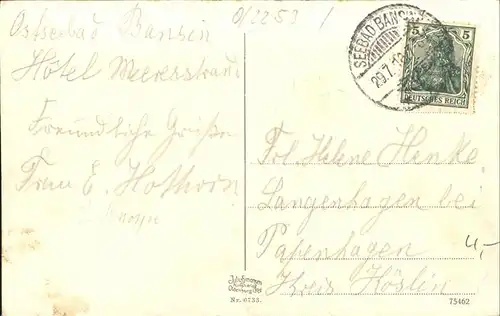 Ostseebad Bansin
Hôtel Meeresstrand
Freundliche Grüße
Frau E. Hothorn
0/22-53 /
SEEBAD BANSIN
29.7.
5 5
DEUTSCHES REICH
Frl. Helene Henke
Langenhagen bei
Papenhagen
Kreis Köslin
4,-
Nr. 0733.
75462